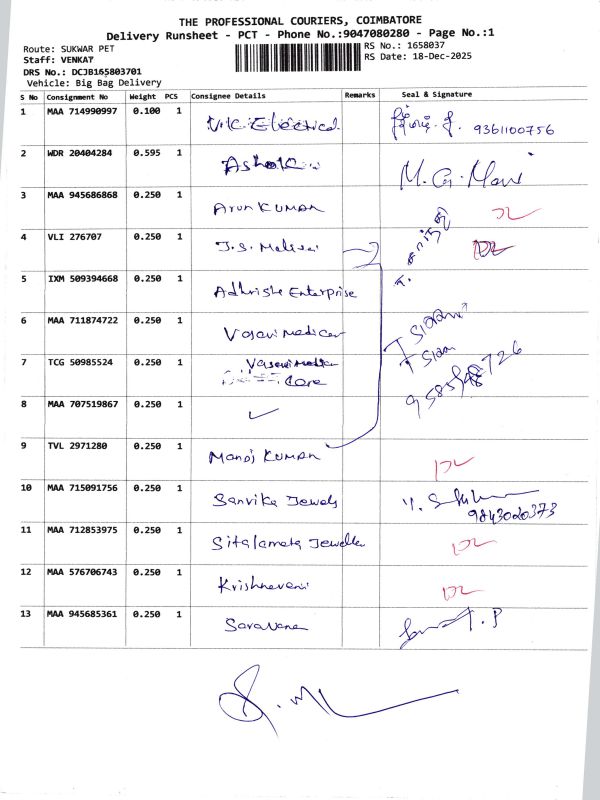 THE PROFESSIONAL COURIERS, COIMBATORE
Delivery Runsheet - PCT - Phone No.:9047080280 - Page No.:1
Route: SUKWAR PET
RS No.: 1658037
Staff: VENKAT
RS Date: 18-Dec-2025
DRS No.: DCJB165803701
Vehicle: Big Bag Delivery
S No Consignment No Weight PCS Consignee Details Remarks Seal & Signature
1 MAA 714990997 0.100 1 V.K. Electrical 9361100756
2 WDR 20404284 0.595 1 M.G. Mani
3 MAA 945686868 0.250 1 Arun KUMAR DL
4 VLI 276707 0.250 1 J.S. DL
5 IXM 509394668 0.250 1 Enterprise
6 MAA 711874722 0.250 1 Vasavi Medical
7 TCG 50985524 0.250 1 Vasavi Care
8 MAA 707519867 0.250 1 ✓
9 TVL 2971280 0.250 1 Manoj KUMAR DL
10 MAA 715091756 0.250 1 Sanvika Jewels 9843020373
11 MAA 712853975 0.250 1 DL
12 MAA 576706743 0.250 1 Krishnaveni DL
13 MAA 945685361 0.250 1 Saravana